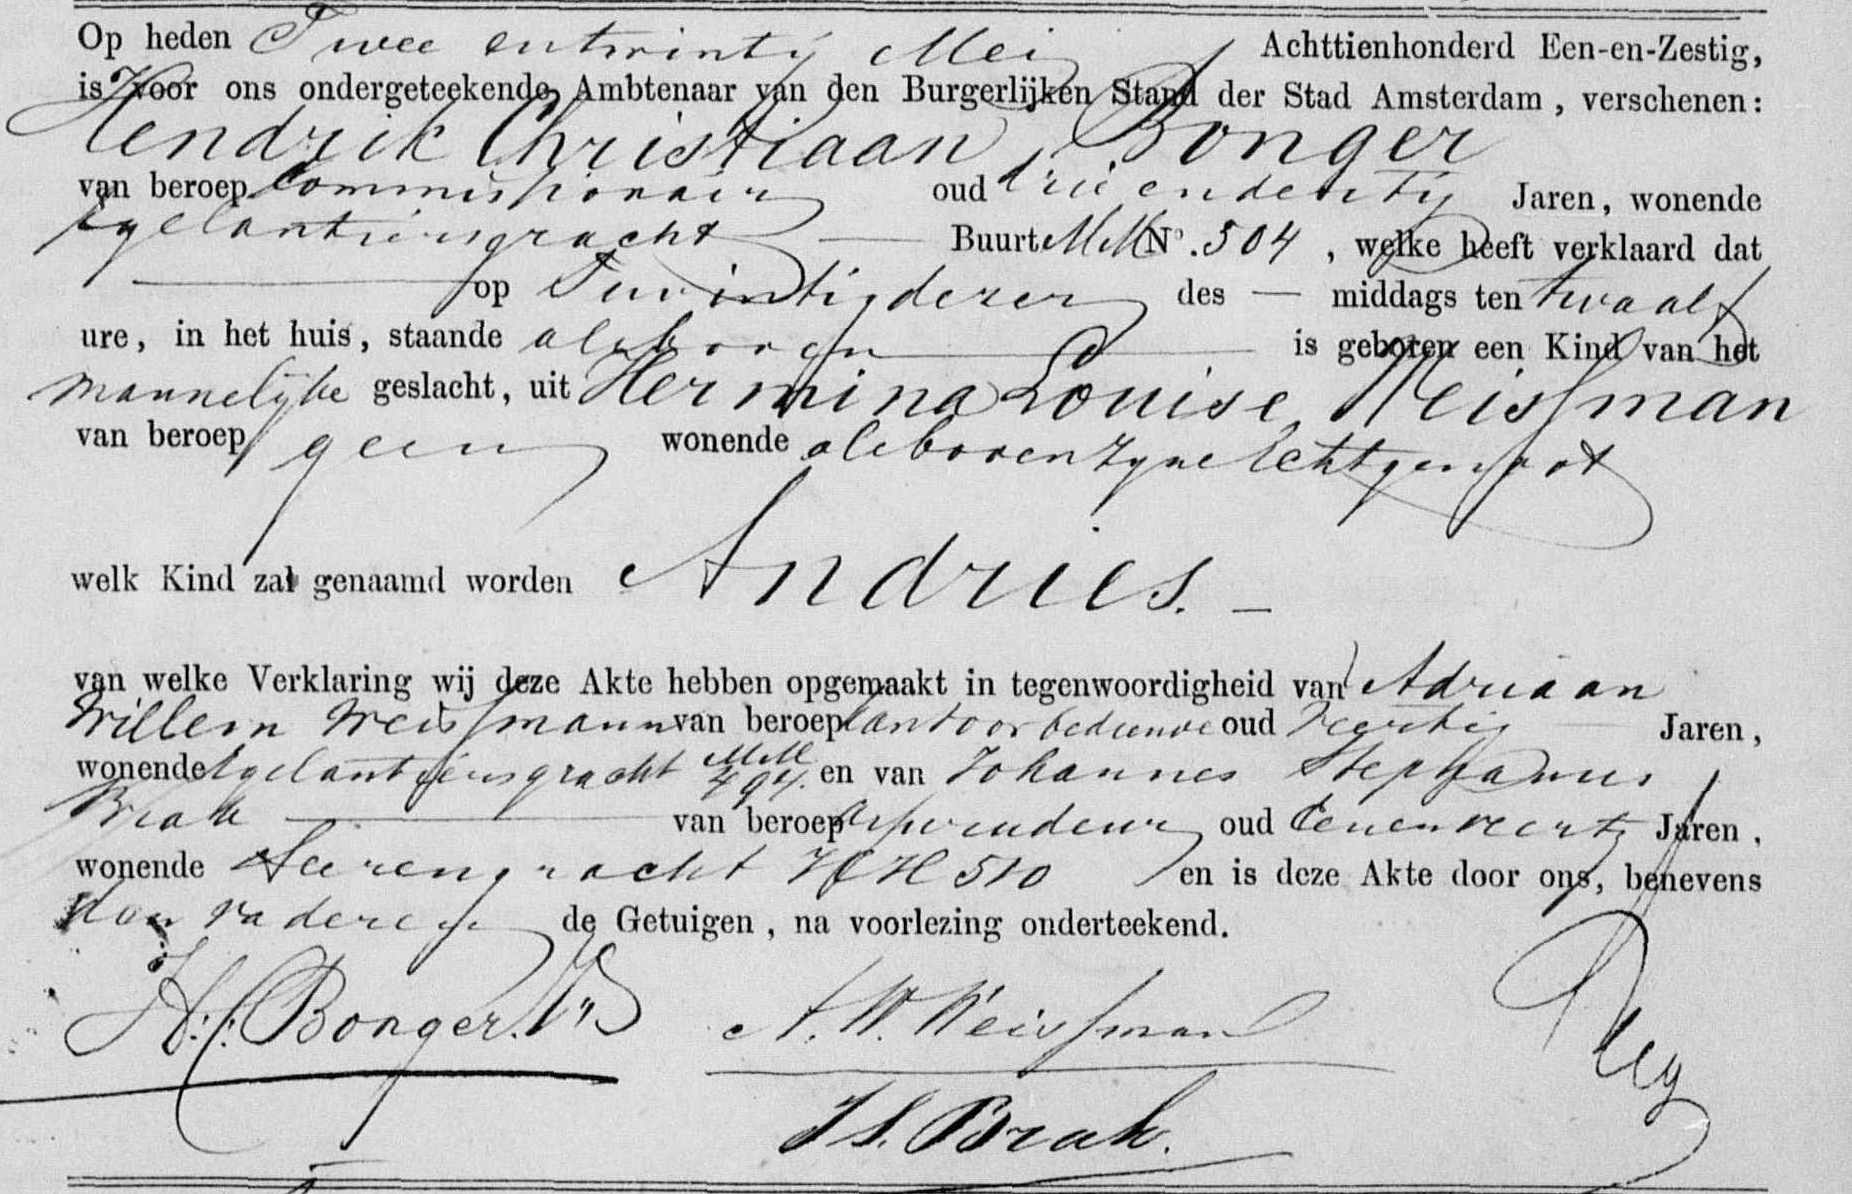 Op heden Twee entwintig Mei Achttienhonderd Een-en-Zestig,
is voor ons ondergeteekende, Ambtenaar van den Burgerlijken Stand der Stad Amsterdam, verschenen:
Hendrik Christiaan Bonger
van beroep Commissionair oud drie endertig Jaren, wonende
Egelantiersgracht — Buurt MM No. 504, welke heeft verklaard dat
— op Twintig dezer des — middags ten twaalf
ure, in het huis, staande alsboven — is geboren een Kind van het
mannelijke geslacht, uit Hermina Louise Weissman
van beroep geen wonende alsboven zyne Echtgenoot
welk Kind zal genaamd worden Andries. —
van welke Verklaring wij deze Akte hebben opgemaakt in tegenwoordigheid van Adriaan
Willem Weissmann van beroep kantoorbediende oud veertig Jaren,
wonende Egelantiersgracht MM 494. en van Johannes Stephanus
Brak — van beroep oud Eenenveertig Jaren,
wonende Heerengracht HH 510 en is deze Akte door ons, benevens
den vader en de Getuigen, na voorlezing onderteekend.
H.C. Bonger. A. W. Weissman
J S. Brak.